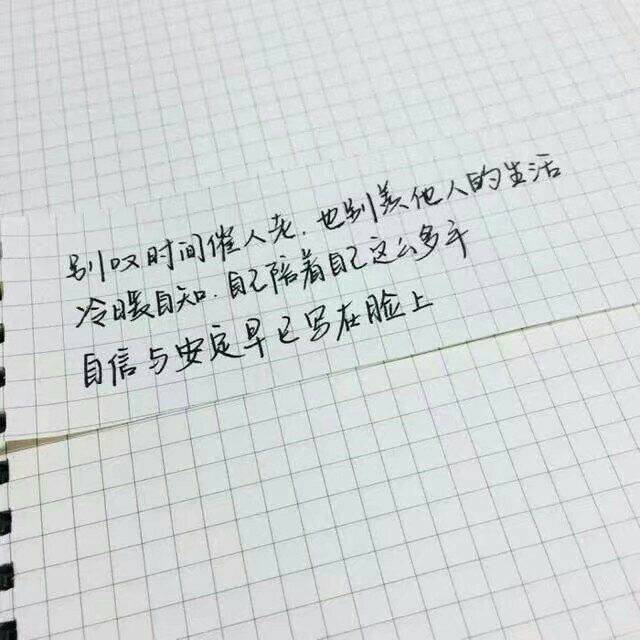 别叹时间催人老.也别羡他人的生活
冷暖自知.自己陪着自己这么多年
自信与安定早已写在脸上